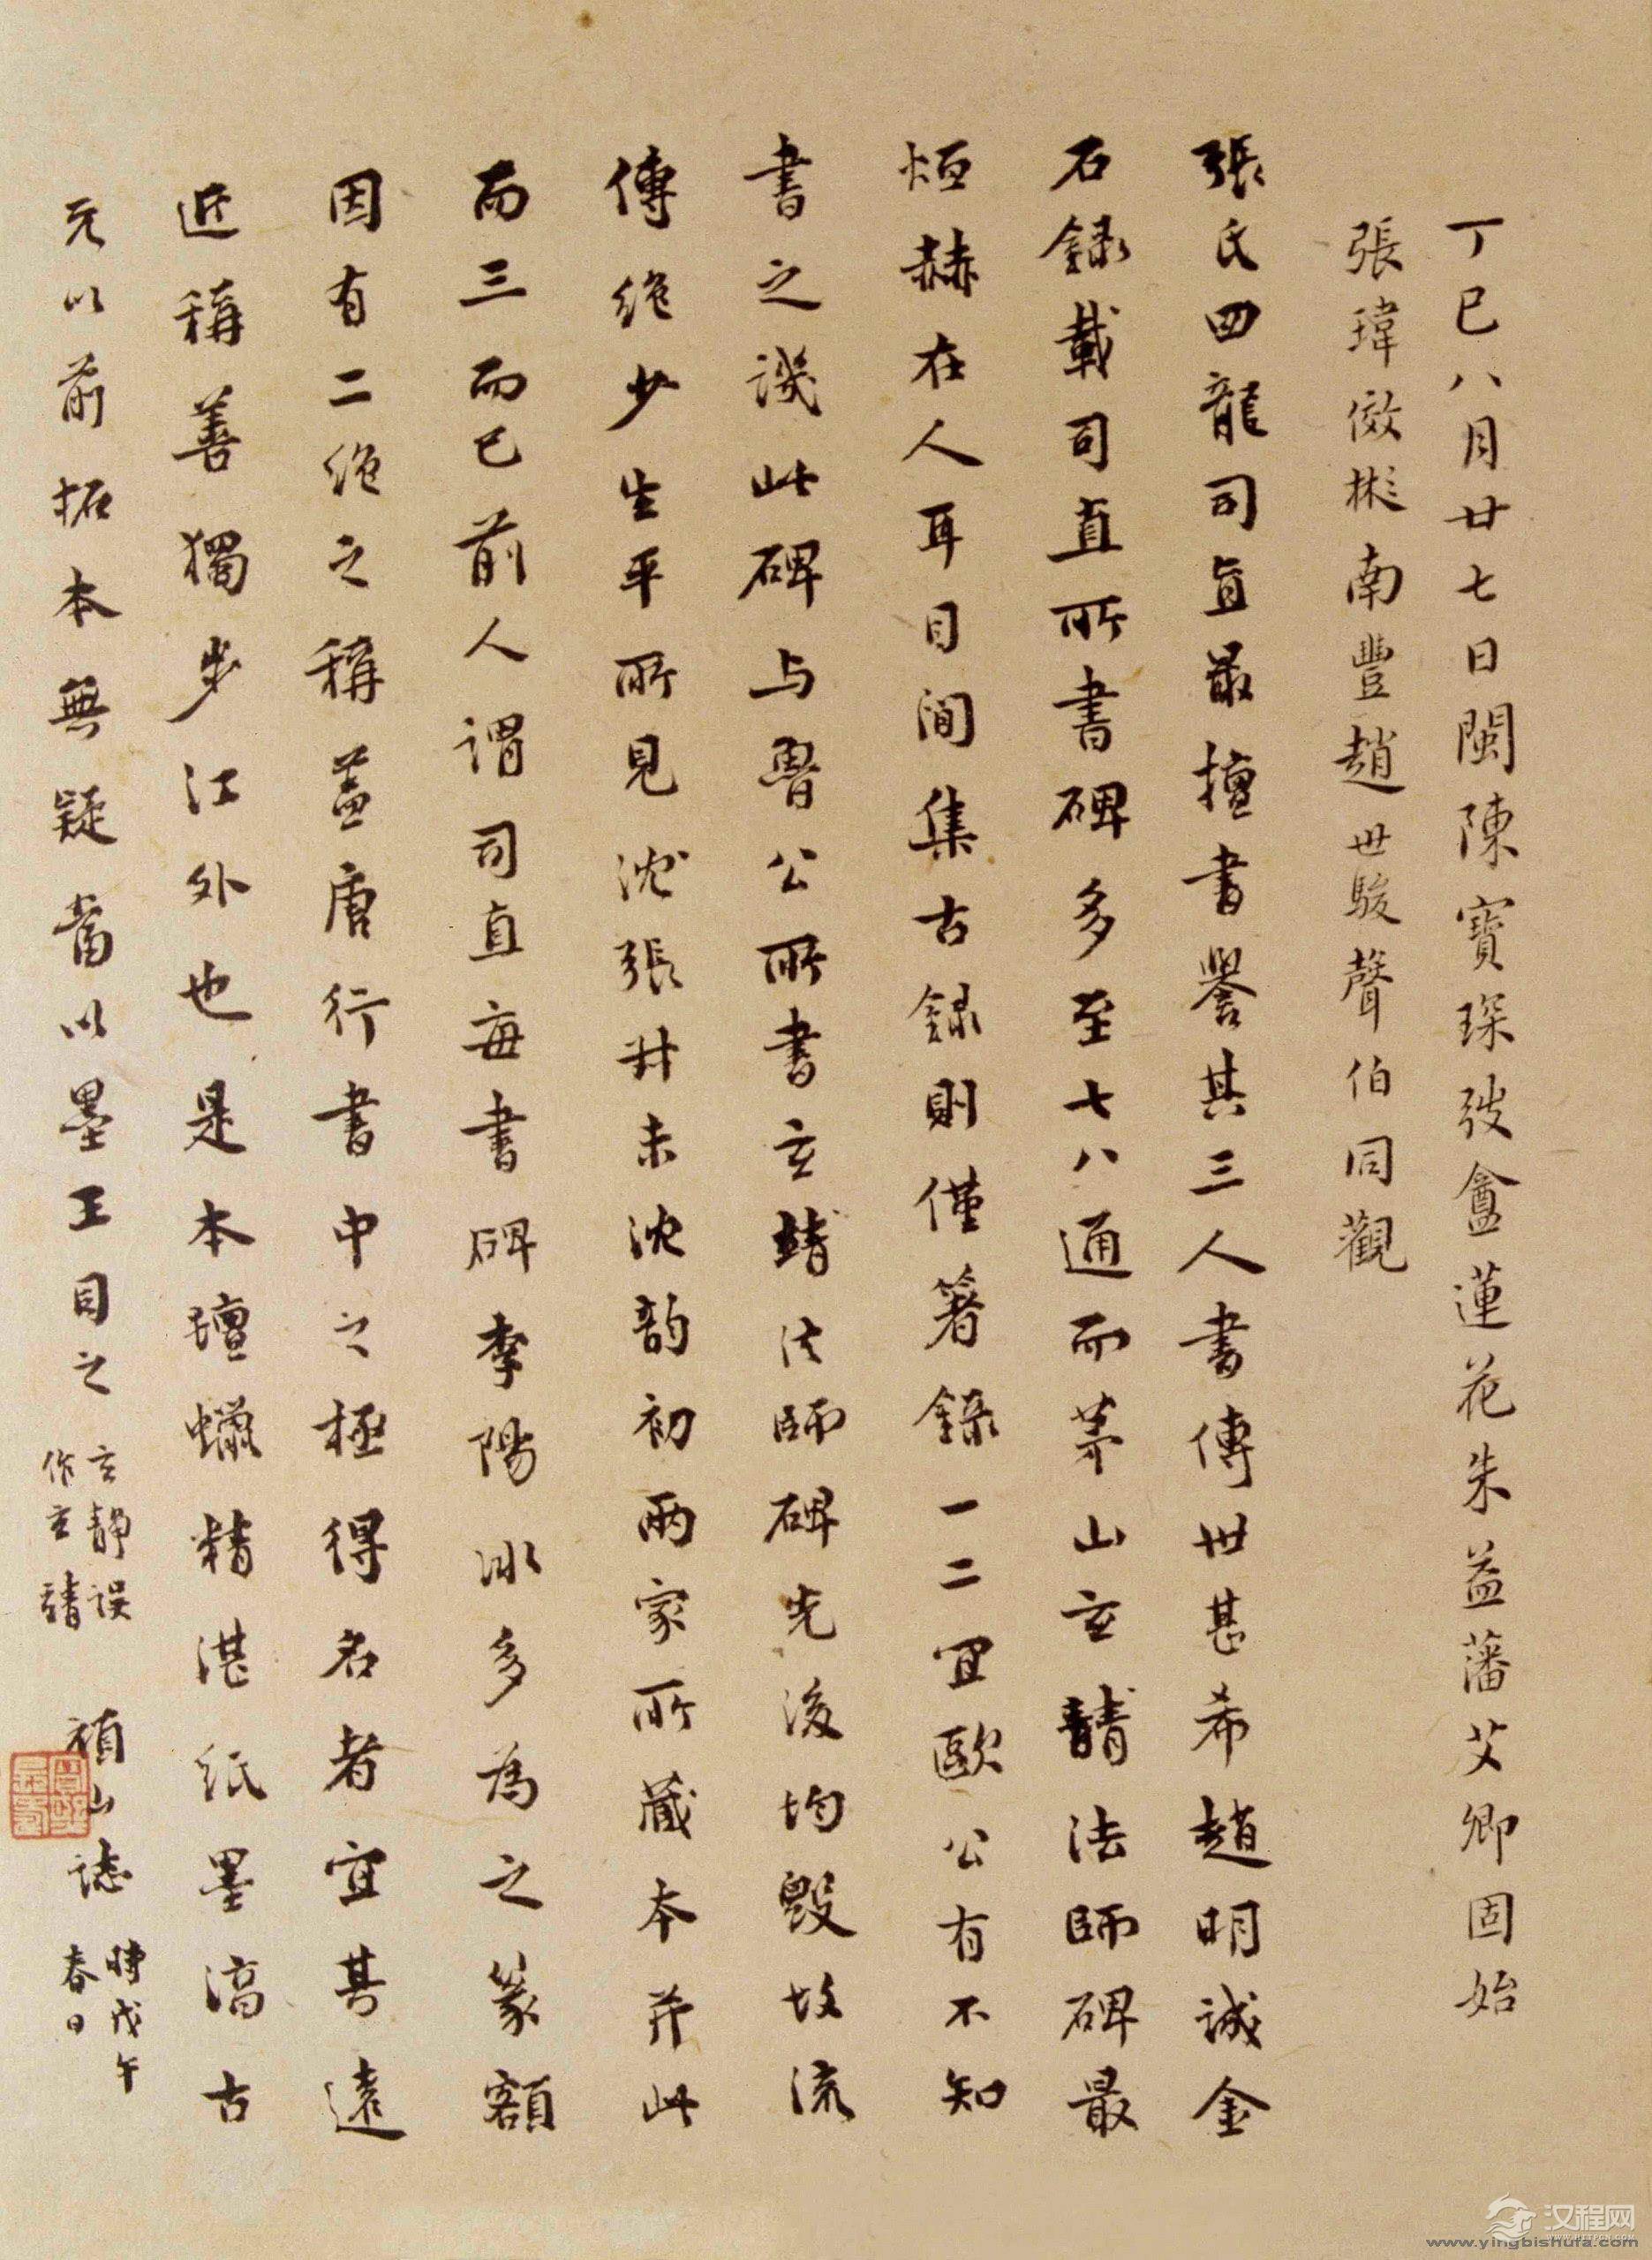 丁巳八月廿七日閩陳寶琛弢盦蓮花朱益藩艾卿固始
張瑋傚彬南豐趙世駿聲伯同觀
張氏四龍司直最擅書譽其三人書傳世甚希趙明誠金
石錄載司直所書碑多至七八通而茅山玄靖法師碑最
烜赫在人耳目間集古録則僅箸錄一二宜歐公有不知
書之譏此碑与魯公所書玄靖法師碑先後均毀故流
傳絶少生平所見沈張叔未沈韵初兩家所藏本并此
而三而已前人謂司直每書碑李陽冰多為之篆額
因有二絶之稱蓋唐行書中之極得名者宜其遠
近稱善獨步江外也是本氊蠟精湛紙墨渟古
元以前拓本無疑當以墨王目之
玄靜誤
作玄靖
頑山誌
時戊午
春日
汉程网
WWW.HTTPCN.COM
www.yingbishufa.com